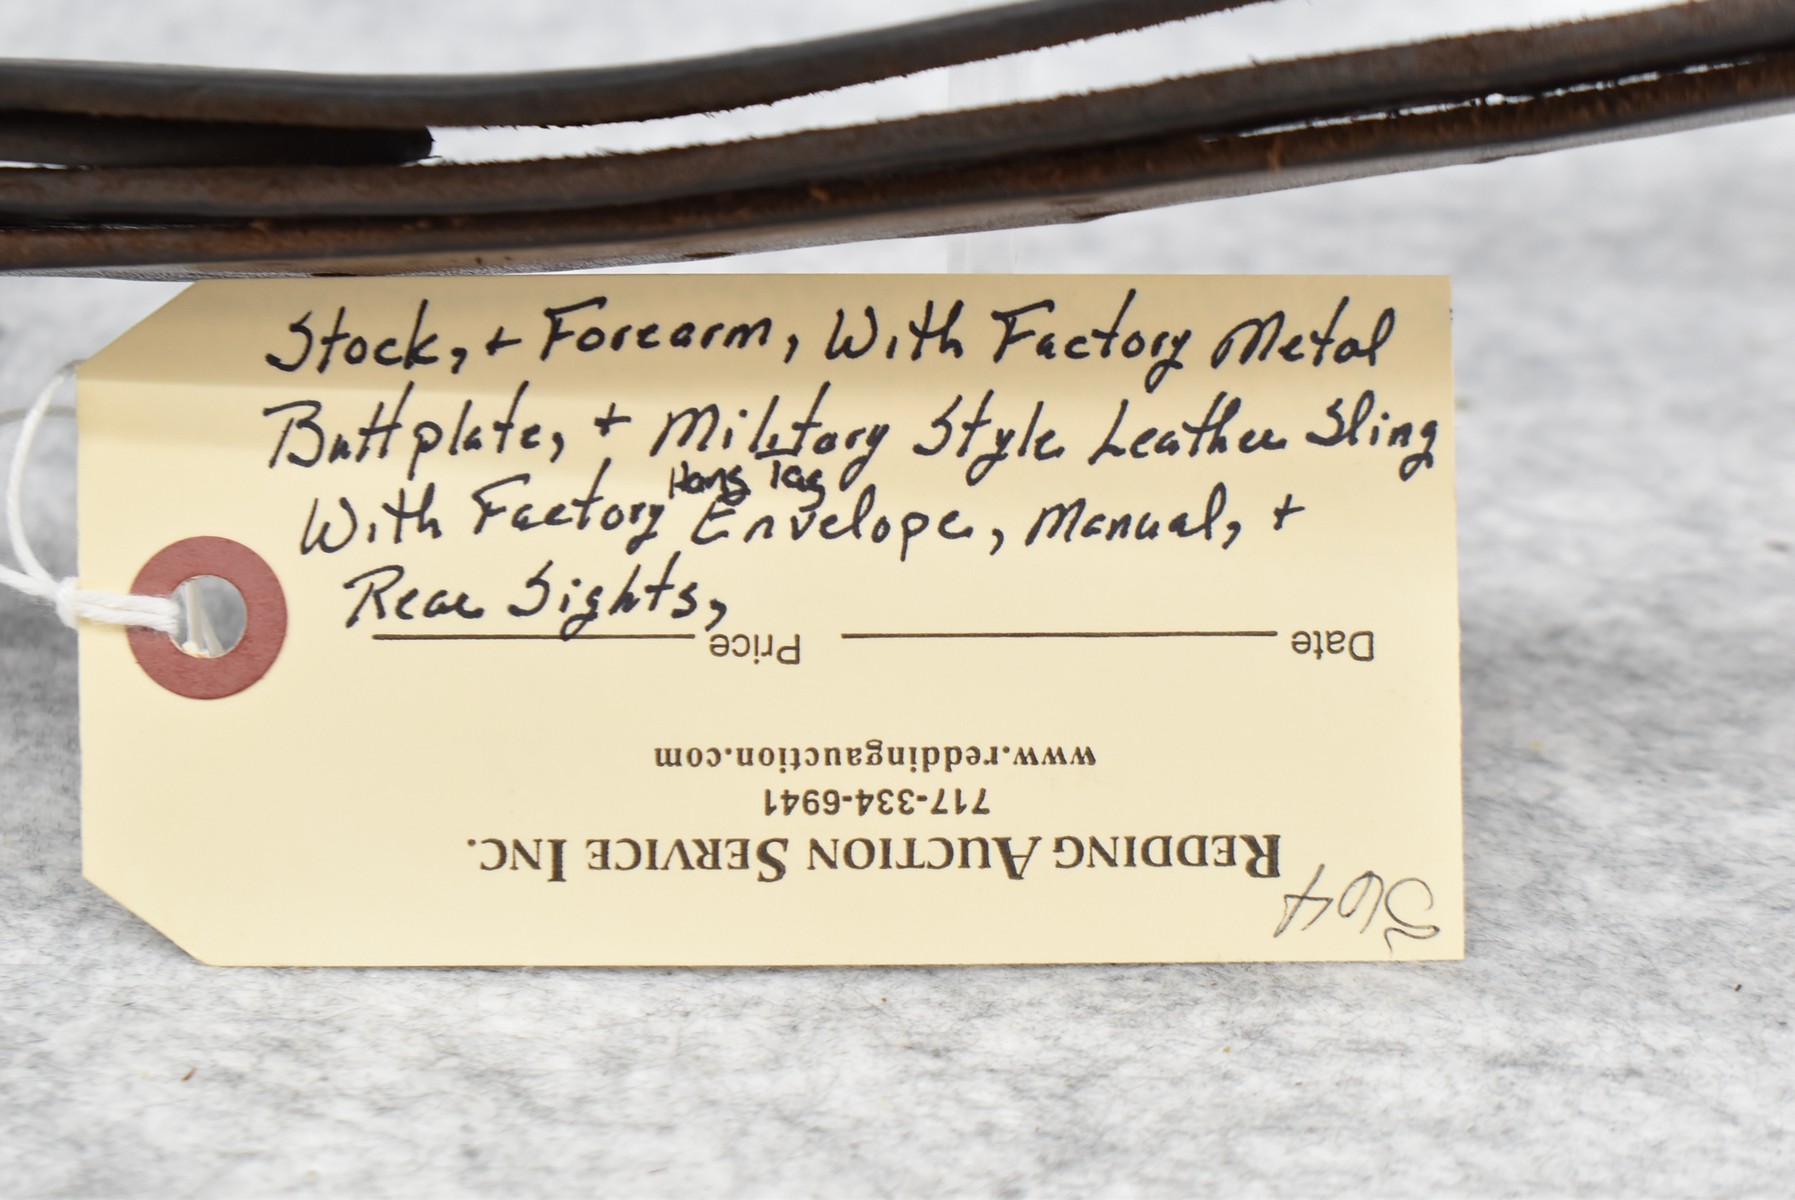 Stock, + Forearm, With Factory Metal
Buttplate, + Military Style Leather Sling
Hang Tag
With Factory Envelope, Manual, +
Rear Sights,
564
REDDING AUCTION SERVICE INC.
717-334-6941
www.reddingauction.com
Date Price